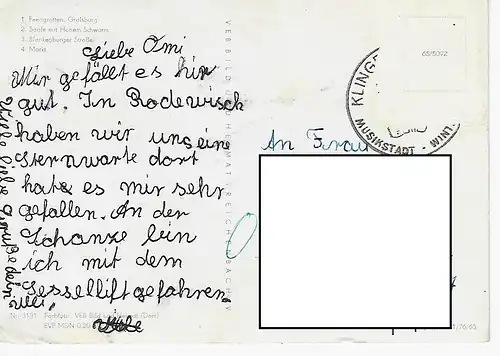 1. Feengrotten, Gralsburg
2. Saale mit Hohem Schwarm
3. Blankenburger Straße
4. Markt
Liebe Omi
Mir gefällt es hir
gut. In Rodewisch
haben wir uns eine
Sternwarte dort
hat es mir sehr
gefallen. An der
Schanze bin
ich mit dem
Sessellift gefahren.
Viele liebe Grüße dein
VEB BILD UND HEIMAT REICHENBACH I. V.
65/5092
KLING
MUSIKSTADT · WINT
An Frau
Nr. 3131 Farbfoto: VEB Bild und Heimat
EVP MDN 0,20
1/76/65